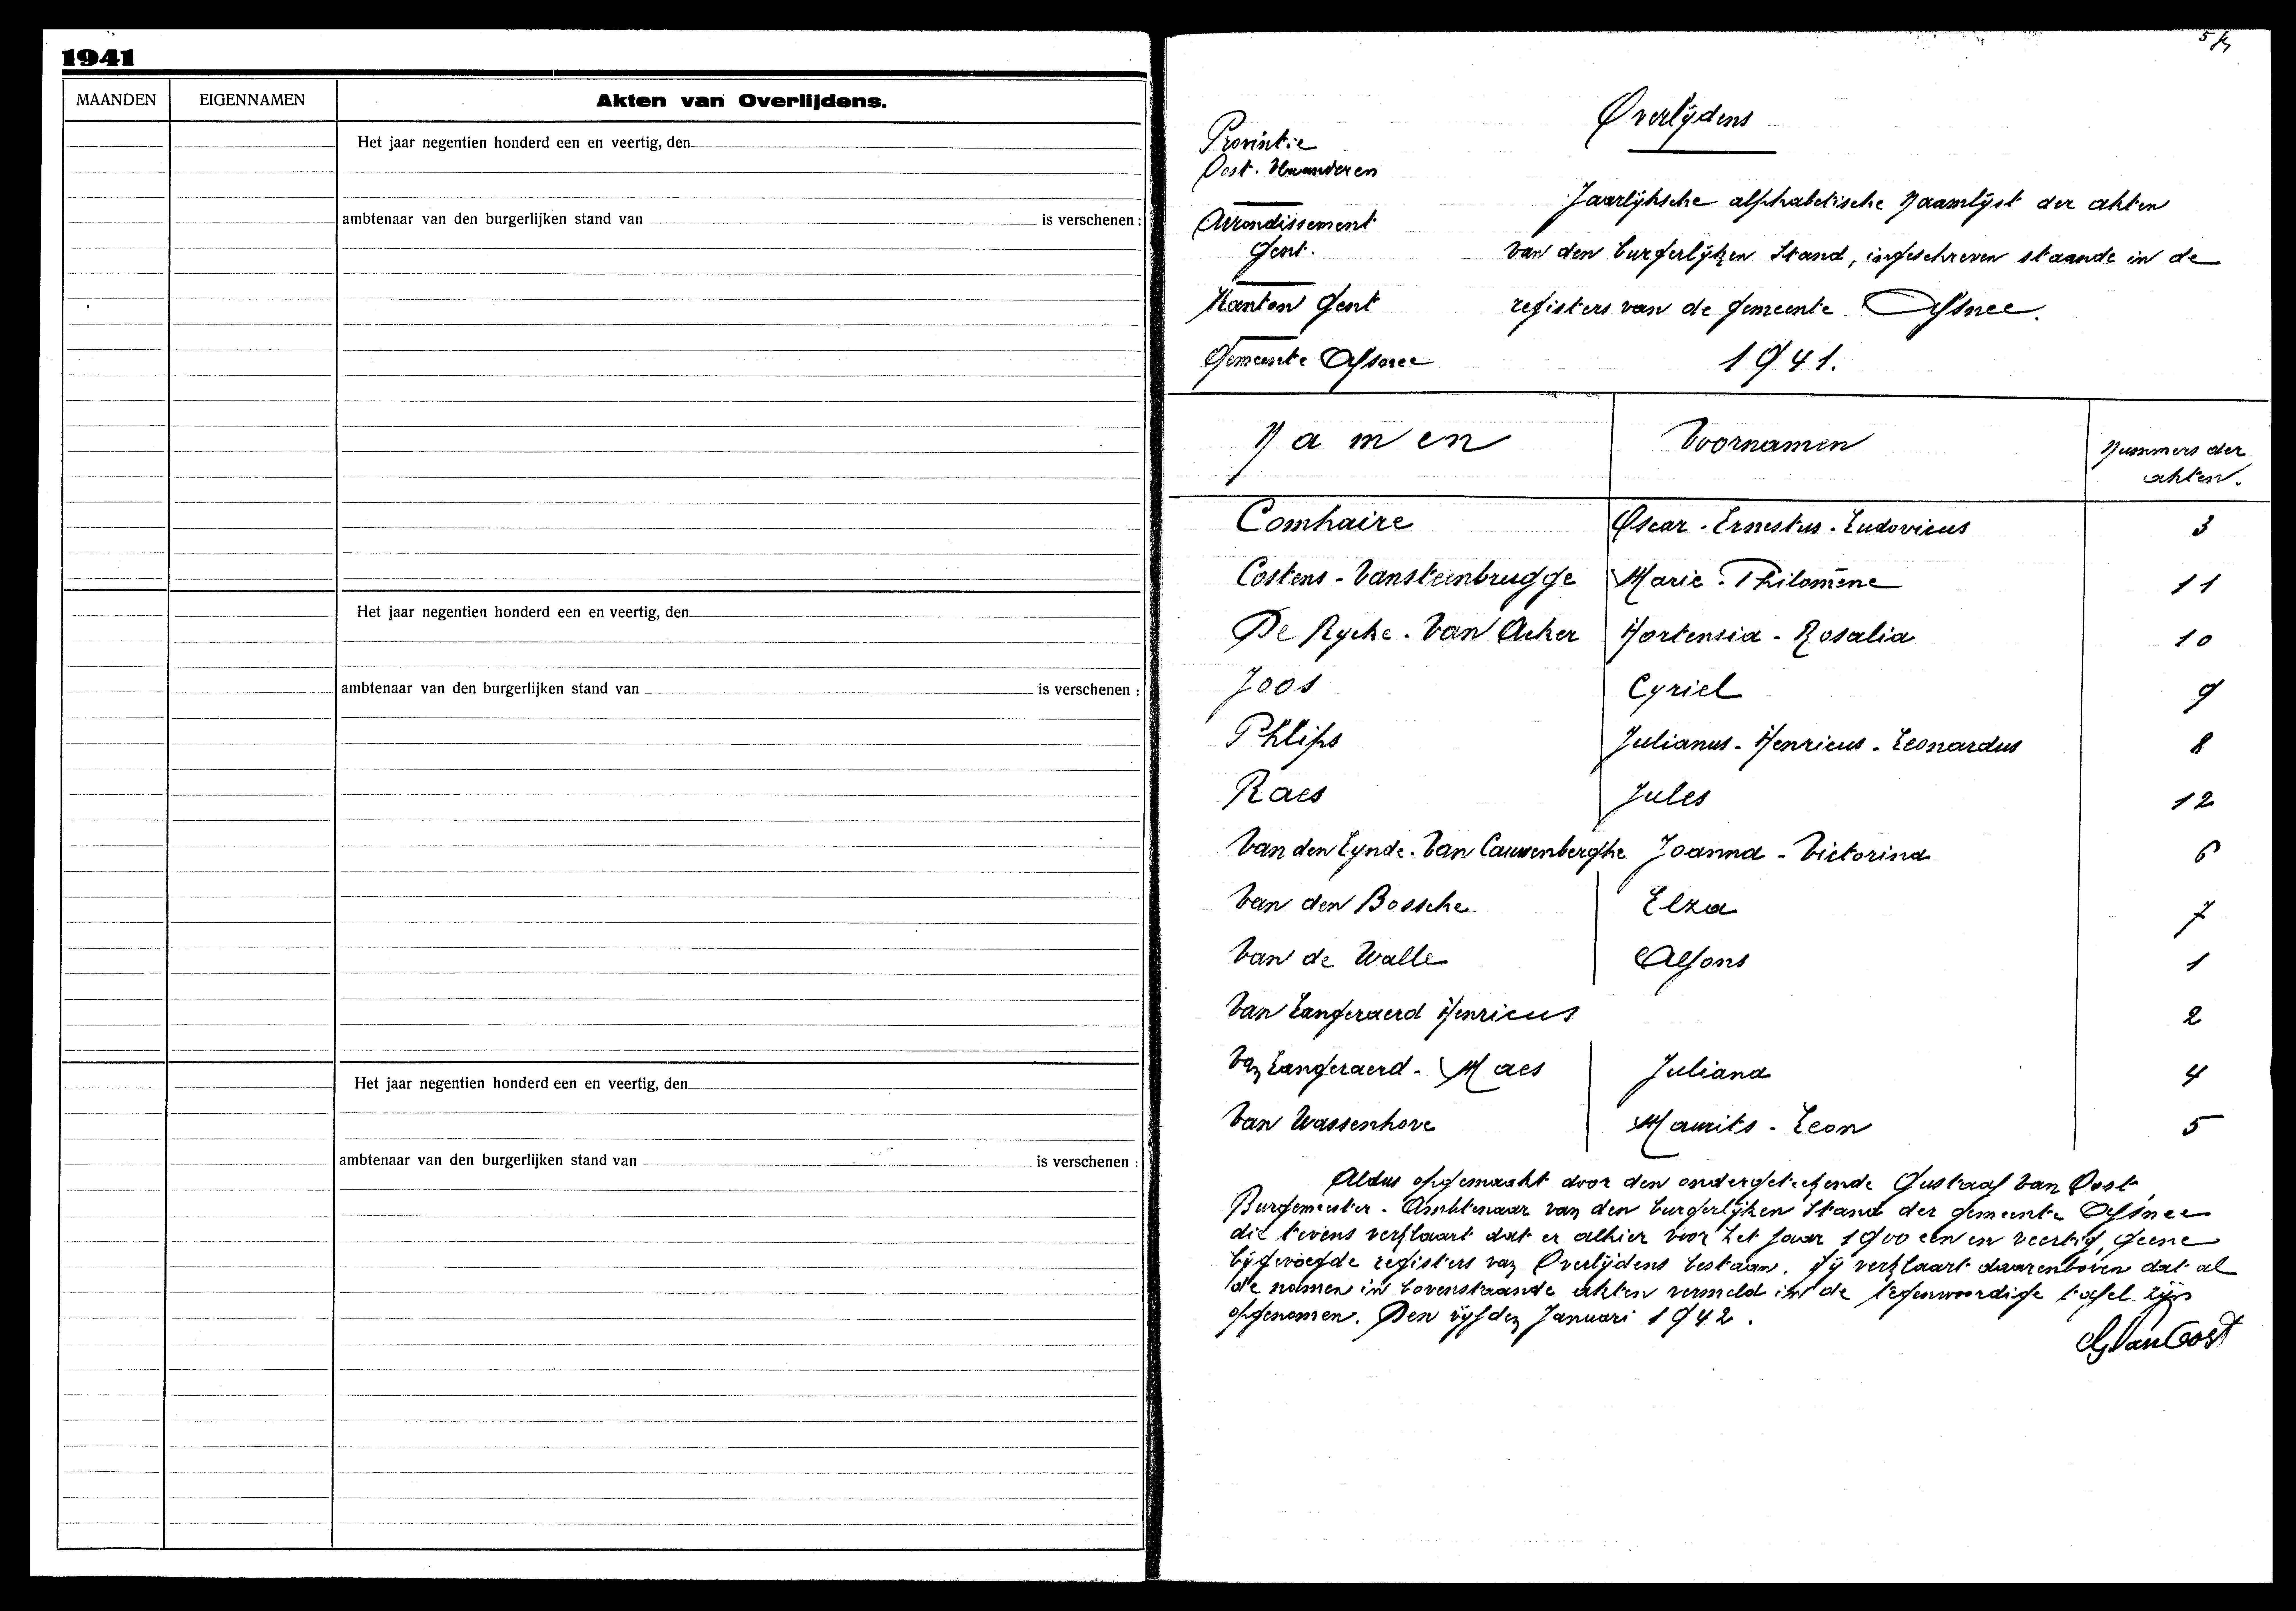 1941
MAANDEN EIGENNAMEN Akten van Overlijdens.
Het jaar negentien honderd een en veertig, den
ambtenaar van den burgerlijken stand van is verschenen :
Het jaar negentien honderd een en veertig, den
ambtenaar van den burgerlijken stand van is verschenen :
Het jaar negentien honderd een en veertig, den
ambtenaar van den burgerlijken stand van is verschenen :
Overlijdens
Provintie
Oost. Vlaanderen
Arrondissement
Gent.
Kanton Gent
Gemeente Afsnee
Jaarlijksche alphabetische Naamlijst der akten
van den burgerlijken Stand, ingeschreven staande in de
registers van de gemeente Afsnee.
1941.
Namen Voornamen Nummers der
akten.
Comhaire Oscar - Ernestus - Ludovicus 3
Costens - Vansteenbrugge Marie - Philomène 11
De Rycke - Van Acker Hortensia - Rosalia 10
Joos Cyriel 9
Phlips Julianus - Henricus - Leonardus 8
Raes Jules 12
Van den Eynde - Van Cauwenberghe Joanna - Victorina 6
Van den Bossche Elza 7
Van de Walle Alfons 1
Van Langeraerd Henricus 2
Van Langeraerd - Maes Juliana 4
Van Wassenhove Maurits - Leon 5
Aldus opgemaakt door den ondergeteekende Gustaaf Van Oost,
Burgemeester - Ambtenaar van den burgerlijken Stand der gemeente Afsnee
die tevens verklaart dat er alhier voor het jaar 1900 een en veertig, geene
bijgevoegde registers van Overlijdens bestaan. Hij verklaart daarenboven dat al
de namen in bovenstaande akten vermeld in de tegenwoordige tafel zijn
opgenomen. Den vijfden Januari 1942.
G Van Oost